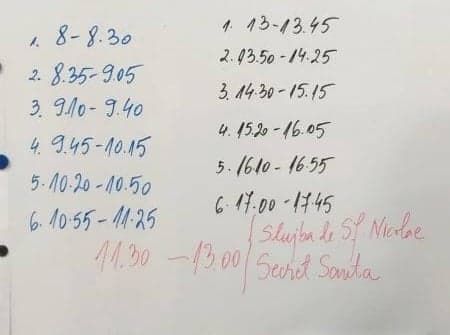 1. 8-8.30
2. 8.35-9.05
3. 9.10-9.40
4. 9.45-10.15
5. 10.20-10.50
6. 10.55-11.25
1. 13-13.45
2. 13.50-14.25
3. 14.30-15.15
4. 15.20-16.05
5. 16.10-16.55
6. 17.00-17.45
11.30 - 13.00
Slujba de Sf Nicolae
Secret Santa